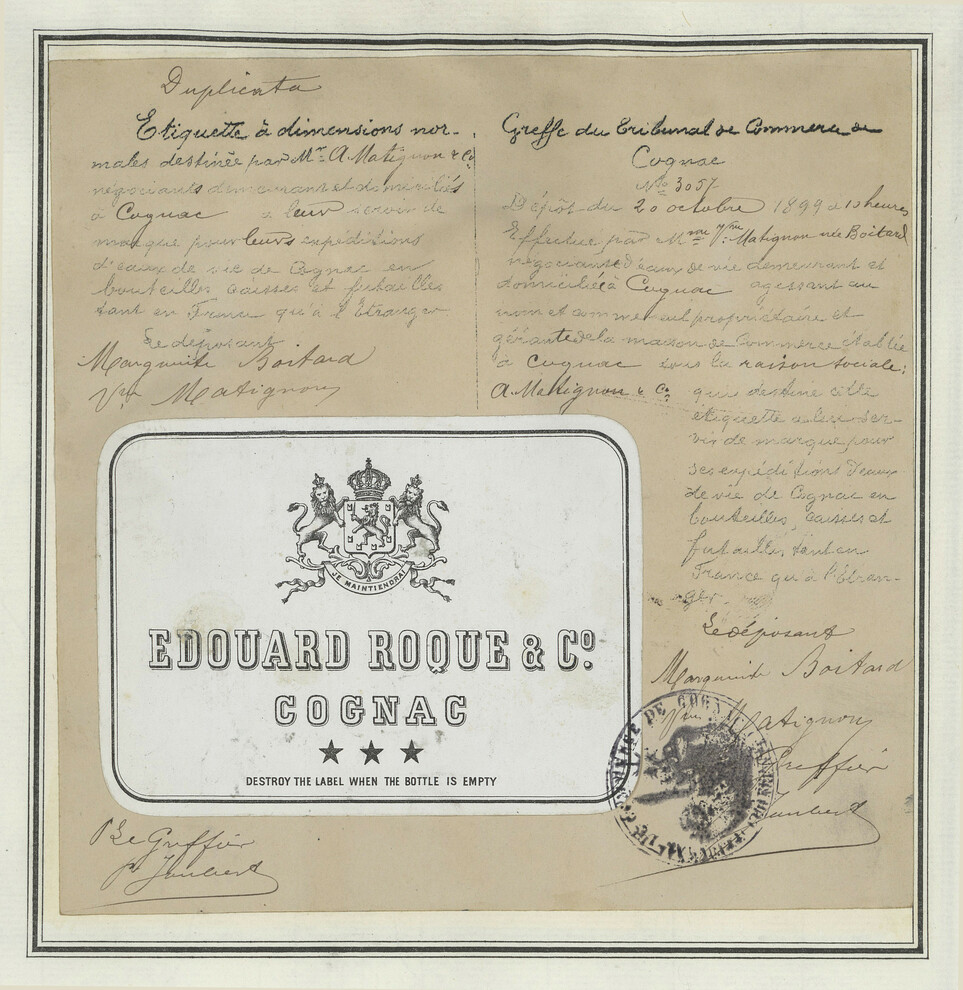 Duplicata
Etiquette à dimensions nor-
males destinée par Mr. A. Matignon & Co.
négociants demeurant et domiciliés
à Cognac à leur servir de
marque pour leurs expéditions
d'eaux de vie de Cognac en
bouteilles caisses et futailles
tant en France qu'à l'Etranger.
Le déposant
Marguerite Boitard
Vve Matignon
Greffe du Tribunal de Commerce de
Cognac
No 3057
Dépôt du 20 octobre 1899 à 10 heures
Effectué par Mme Vve Matignon née Boitard
négociante d'eaux de vie demeurant et
domiciliée à Cognac agissant au
nom et comme seul propriétaire et
gérante de la maison de Commerce établie
à Cognac sous la raison sociale:
A. Matignon & Co. qui destine cette
étiquette à leur ser-
vir de marque pour
ses expéditions d'eaux
de vie de Cognac en
bouteilles, caisses et
futailles tant en
France qu'à l'Etran-
ger.
Le déposant
Marguerite Boitard
Vve Matignon
Greffier
Jaubert
JE MAINTIENDRAI
EDOUARD ROQUE & Co.
COGNAC
★ ★ ★
DESTROY THE LABEL WHEN THE BOTTLE IS EMPTY
DE COGNAC
Le Greffier
Jaubert